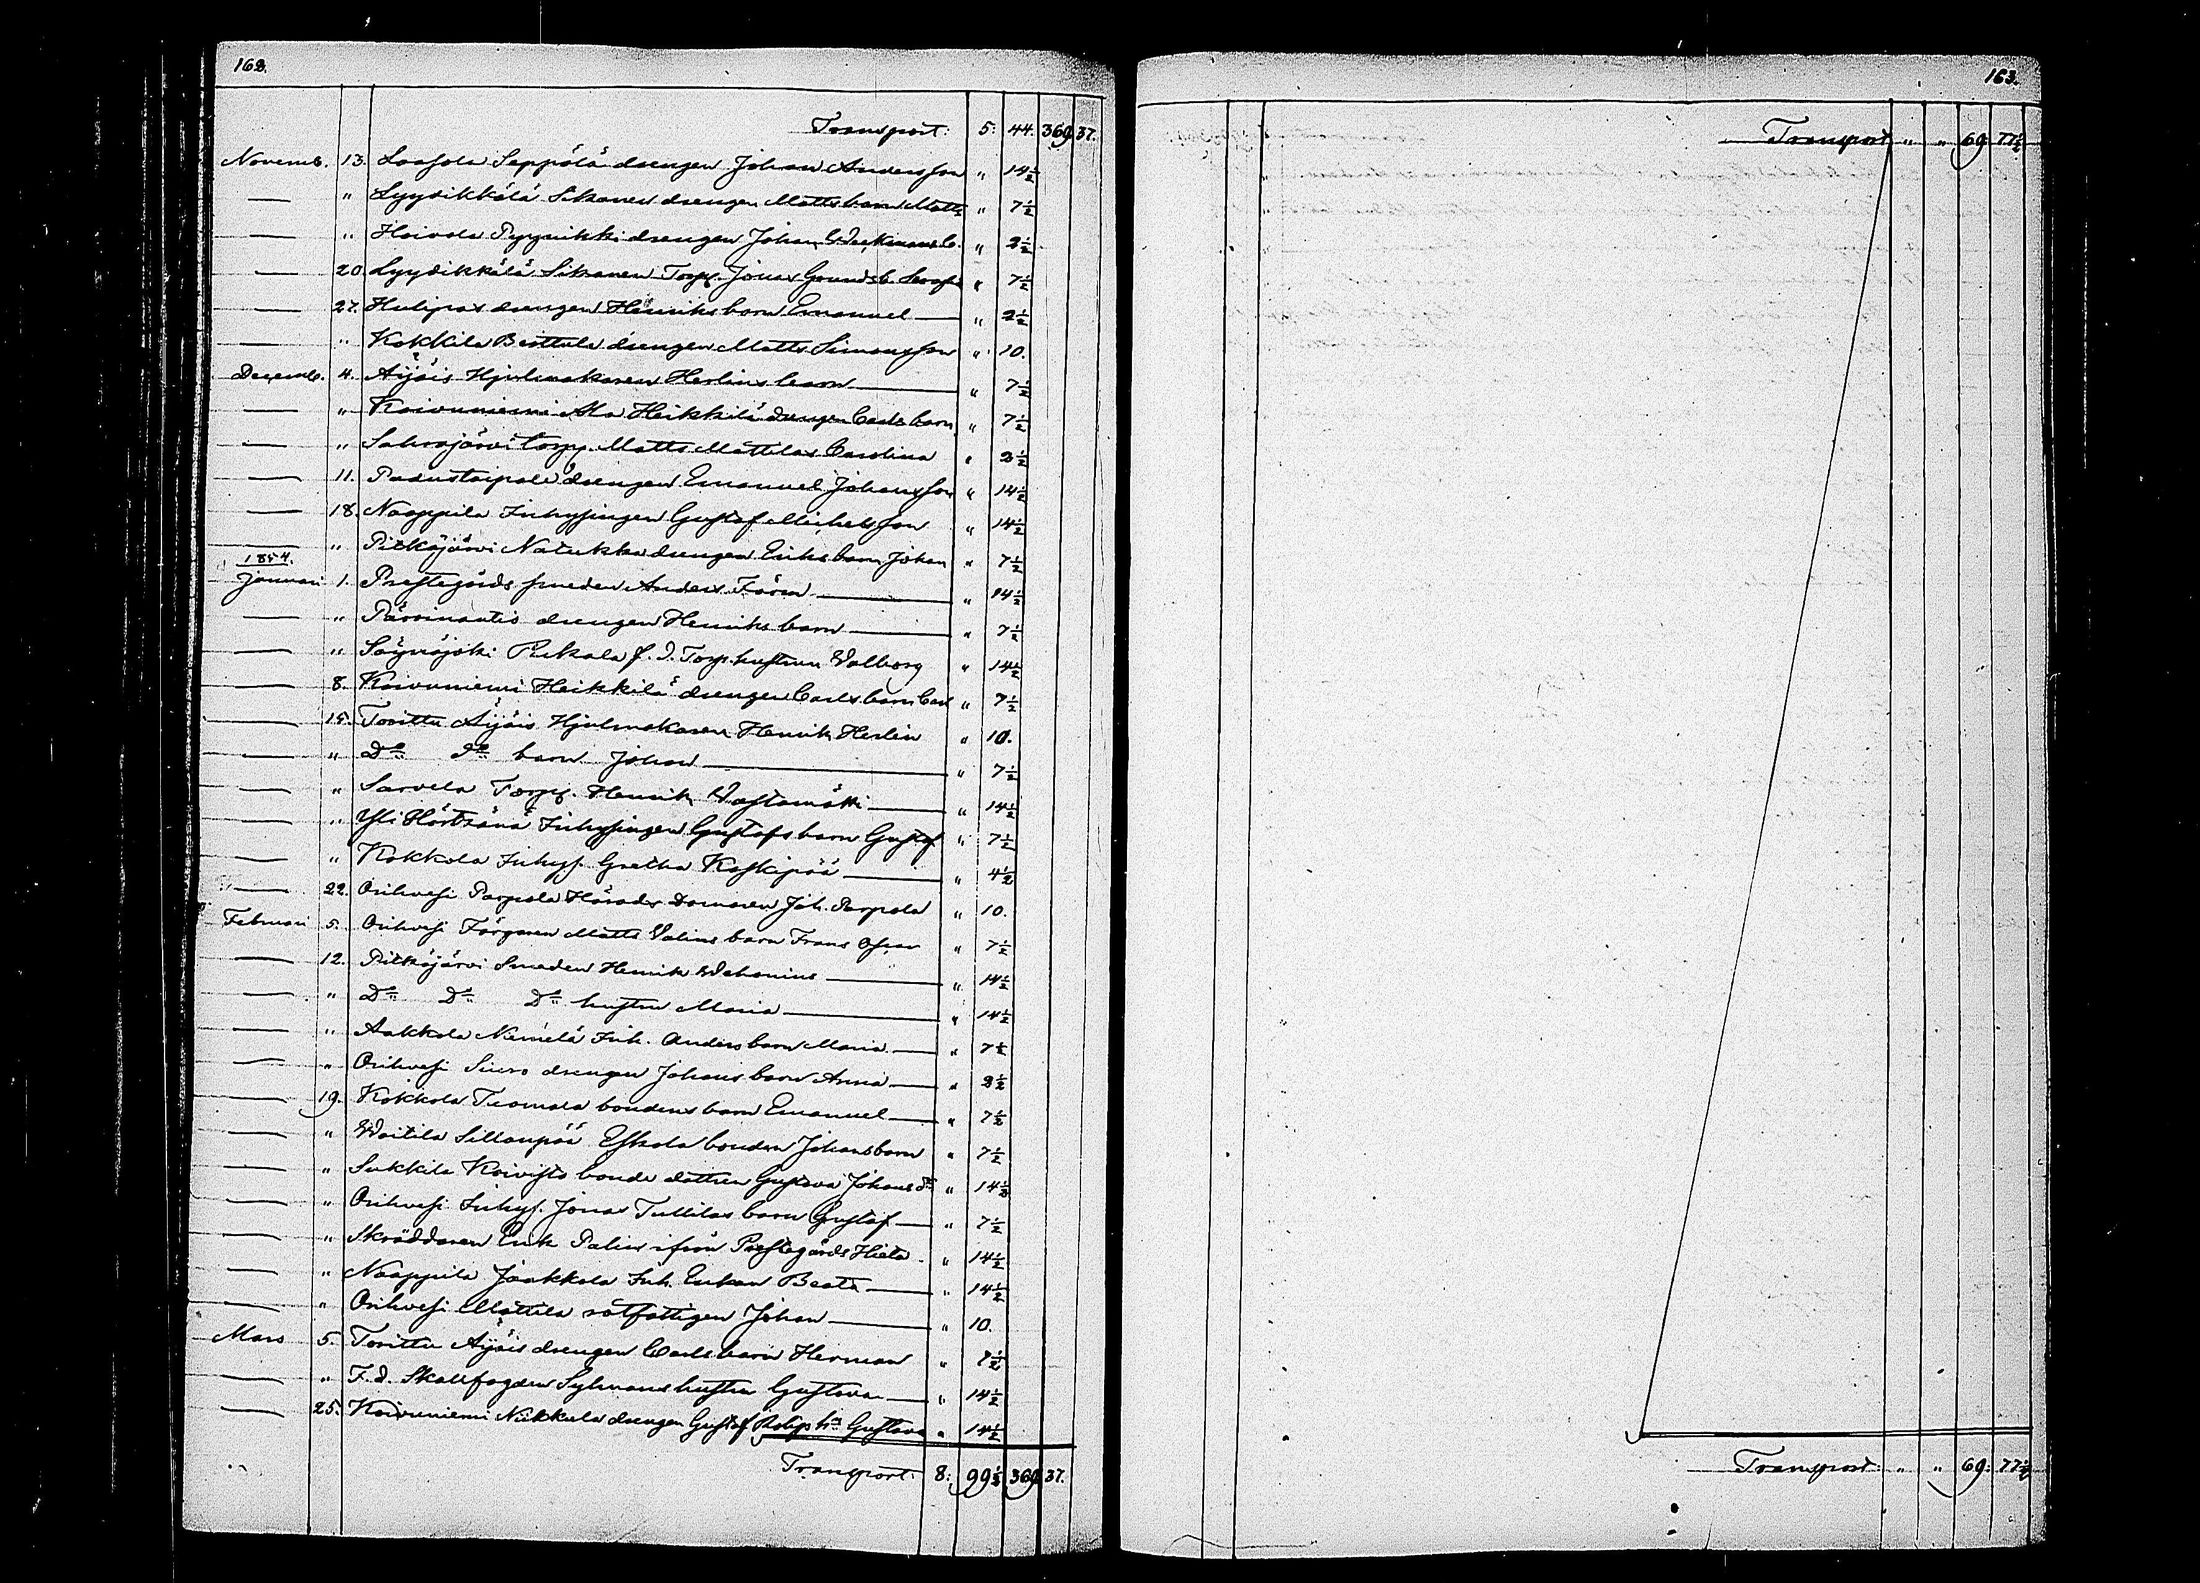 162.
Transport: 5: 44. 369 37.
Novemb. 13. Laasola Seppälä drengen Johan Andersson " 14½
— " Lyydikkälä Sikanen drengen Matts barn Matts " 7½
— " Hoivola Pyynikki drengen Johan b. " 2½
— 20 Lyydikkälä Sikanen Torp. Jonas " 7½
— 27. drengen Henriks barn Emanuel — " 2½
— " Kokkila Perttula drengen Matts Simonsson " 10.
Decemb. 4. Äijäis Hjulmakaren Herlins barn — " 7½
— " Koivuniemi Ala Heikkilä drengen Carls barn " 7½
— " Sahrajärvi torp. Matts Mattilas Carolina " 2½
— 11. Padustaipale drengen Emanuel Johansson " 14½
— 18. Naappila Inhysingen Gustaf Michelsson " 14½
— " Pitkäjärvi Natukka drengen Eriks barn Johan " 7½
1854.
Januari 1. Prestegårds smeden Anders Förm — " 14½
— " drengen Henriks barn — " 7½
— " Säynäjoki Pukala f. d. Torp. hustrun Walborg " 14½
— 8. Koivuniemi Heikkilä drengen Carls barn Carl " 7½
— 15. Torittu Äijäis Hjulmakaren Henrik Herlin " 10.
— " Do do barn Johan — " 7½
— " Sarvela Torp. Henrik Wästamäki — " 14½
— " Yli Härtsänä Inhysingen Gustafs barn Gustaf " 7½
— " Kokkola Inhys. Gretha Koskipää — " 4½
— 22. Orihvesi Parpola Härads Domaren Joh. Parpola " 10.
Februari 5. Orihvesi Färgaren Matts Valins barn Frans Oscar " 7½
— 12. Pitkäjärvi Smeden Henrik Wahonius — " 14½
— " Do Do Do hustru Maria — " 14½
— " Aakkola Niemelä Inh. Anders barn Maria — " 7½
— " Orihvesi Siuro drengen Johans barn Anna — " 2½
— 19. Kokkola Tuomola bondens barn Emanuel — " 7½
— " Woitila Sillanpää Eskola bonden Johans barn " 7½
— " Sukkila Koivisto bonde dottren Gustava Johans dr " 14½
— " Orihvesi Inhys. Jonas Tullilas barn Gustaf — " 7½
— " Skräddaren Erik Palin ifrån Prestegårds Hieta " 14½
— " Naappila Jaakkola Inh. Enkan Beata — " 14½
— " Orihvesi Mattila rotfattigen Johan — " 10.
Mars 5. Torittu Äijäis drengen Carls barn Herman " 7½
— " F. d. Skallfogden Sylmans hustru Gustava — " 14½
— 25. Koivuniemi Niikkula drengen Gustaf hu Gustava " 14½
Transport: 8: 99½ 369 37.
163.
Transport " " 69 77½
Transport: " " 69: 77½